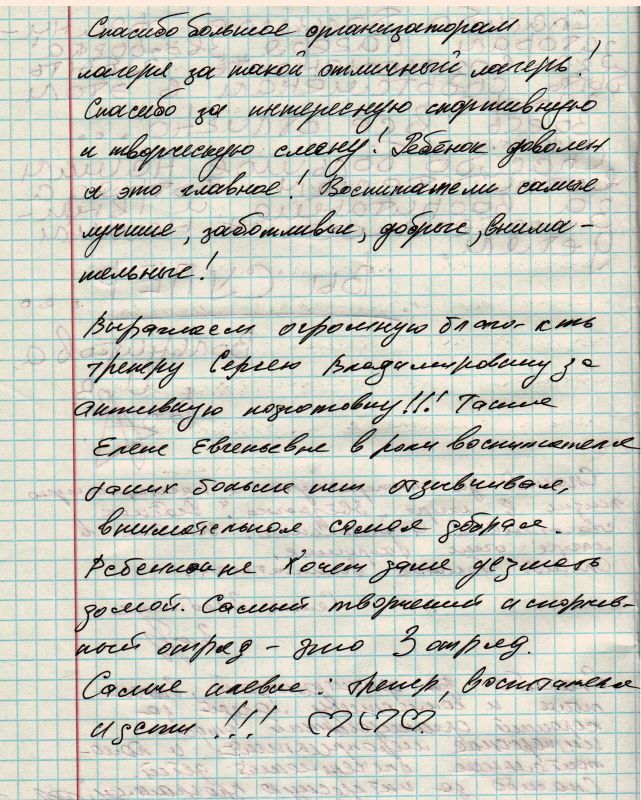 Спасибо большое организаторам
лагеря за такой отличный лагерь!
Спасибо за интересную спортивную
и творческую смену! Ребёнок доволен
и это главное! Воспитатели самые
лучшие, заботливые, добрые, внима-
тельные!
Выражаем огромную благо-сть
тренеру Сергею Владимировичу за
активную подготовку!!! Также
Елене Евгеньевне в роли воспитателя
таких больше нет отзывчивая,
внимательная самая добрая.
Ребенок не хочет даже уезжать
домой. Самый творческий и спортив-
ный отряд – это 3 отряд.
Самые клевые: тренер, воспитателя
и дети!!! ♡♡♡